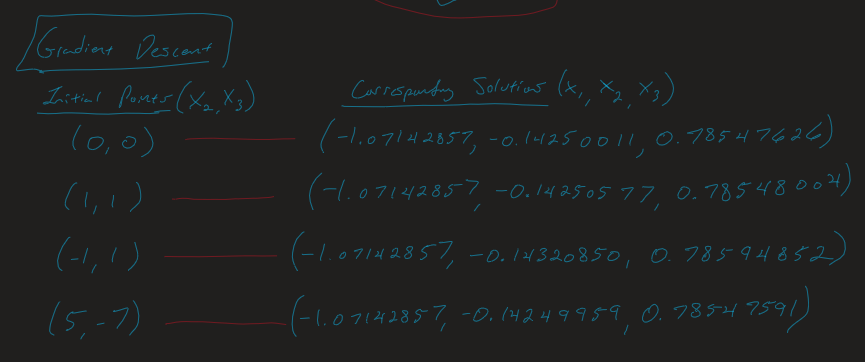 Gradient Descent
Initial Points (x₂, x₃) Corresponding Solutions (x₁, x₂, x₃)
(0, 0) (-1.07142857, -0.14250011, 0.78547626)
(1, 1) (-1.07142857, -0.14250577, 0.78548004)
(-1, 1) (-1.07142857, -0.14320850, 0.78594852)
(5, -7) (-1.07142857, -0.14249959, 0.78547591)